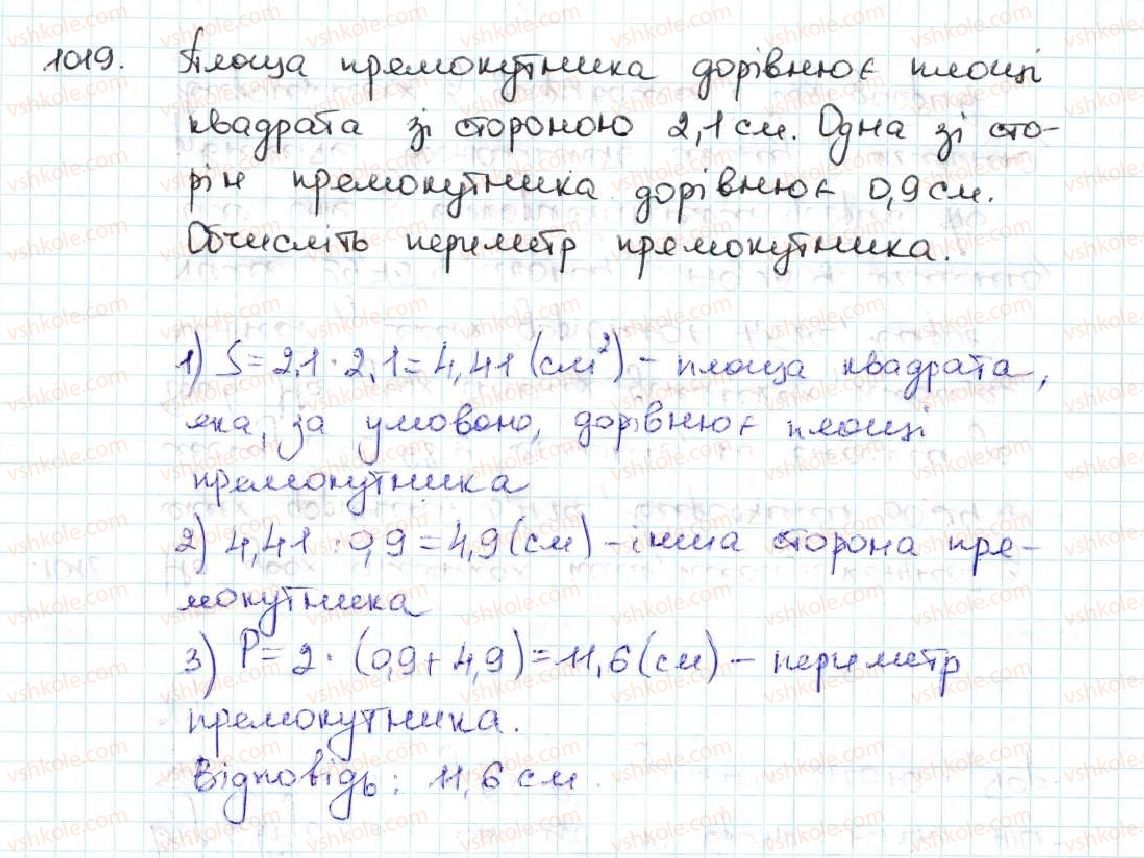 1019. Площа прямокутника дорівнює площі
квадрата зі стороною 2,1 см. Одна зі сто-
рін прямокутника дорівнює 0,9 см.
Обчисліть периметр прямокутника.
1) S = 2,1 · 2,1 = 4,41 (см²) – площа квадрата,
яка, за умовою, дорівнює площі
прямокутника
2) 4,41 : 0,9 = 4,9 (см) – інша сторона пря-
мокутника
3) P = 2 · (0,9 + 4,9) = 11,6 (см) – периметр
прямокутника.
Відповідь: 11,6 см.